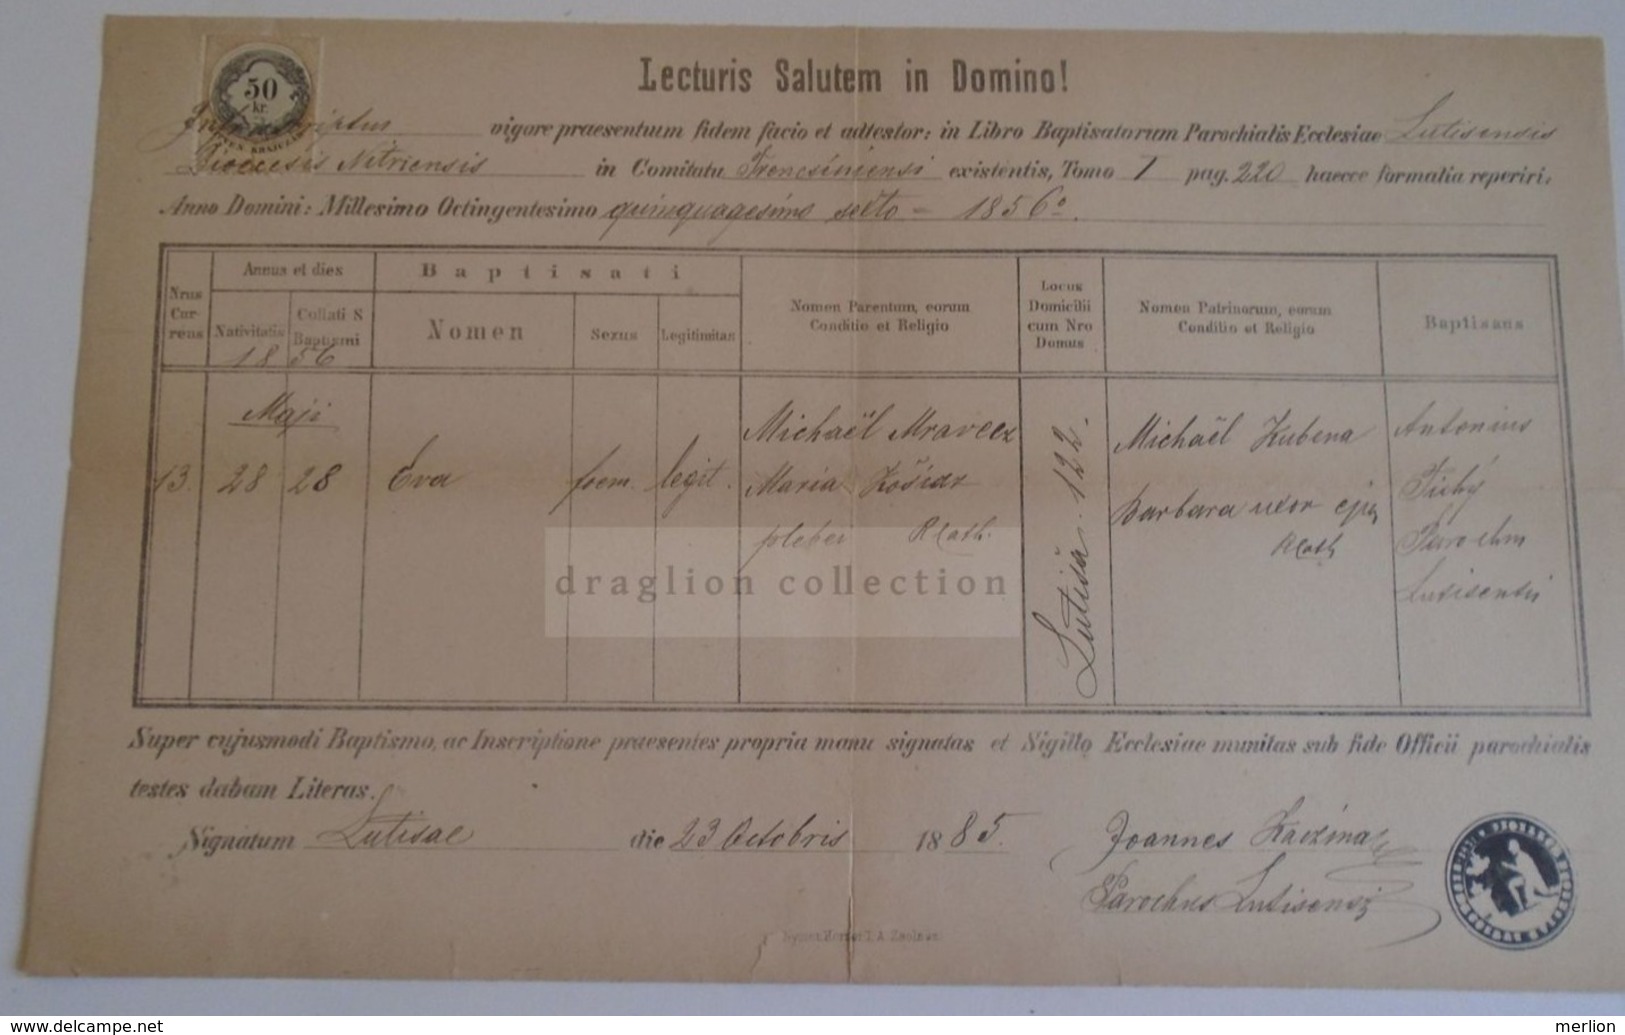 Lecturis Salutem in Domino!
50
kr.
vigore praesentium fidem facio et adtestor: in Libro Baptisatorum Parochialis Ecclesiae Lutisensis
Dioecesis Nitriensis in Comitatu Trencsiniensi existentis, Tomo I pag. 220 haecce formalia reperiri.
Anno Domini: Millesimo Octingentesimo quinquagesimo sexto – 1856o.
Nrus Cur-rens
Annus et dies
Baptisati
Nomen Parentum, eorum Conditio et Religio
Locus Domicilii cum Nro Domus
Nomen Patrinorum, eorum Conditio et Religio
Baptisans
Nativitatis
Collati S Baptismi
Nomen
Sexus
Legitimitas
1856
Maji
13.
28
28
Eva
foem.
legit.
Michaël Mravecz
Maria
pleber Rcath.
Lutiša. 122.
Michaël Kubena
Barbara uxor ejus
Rcath
Antonius
Tichý
Parochus
Lutisensis
draglion collection
Super cujusmodi Baptismo, ac Inscriptione praesentes propria manu signatas et Sigillo Ecclesiae munitas sub fide Officii parochialis
testes dabam Literas.
Signatum Lutisae die 23 Octobris 1885.
Joannes
Parochus Lutisensis
www.delcampe.net
merlion